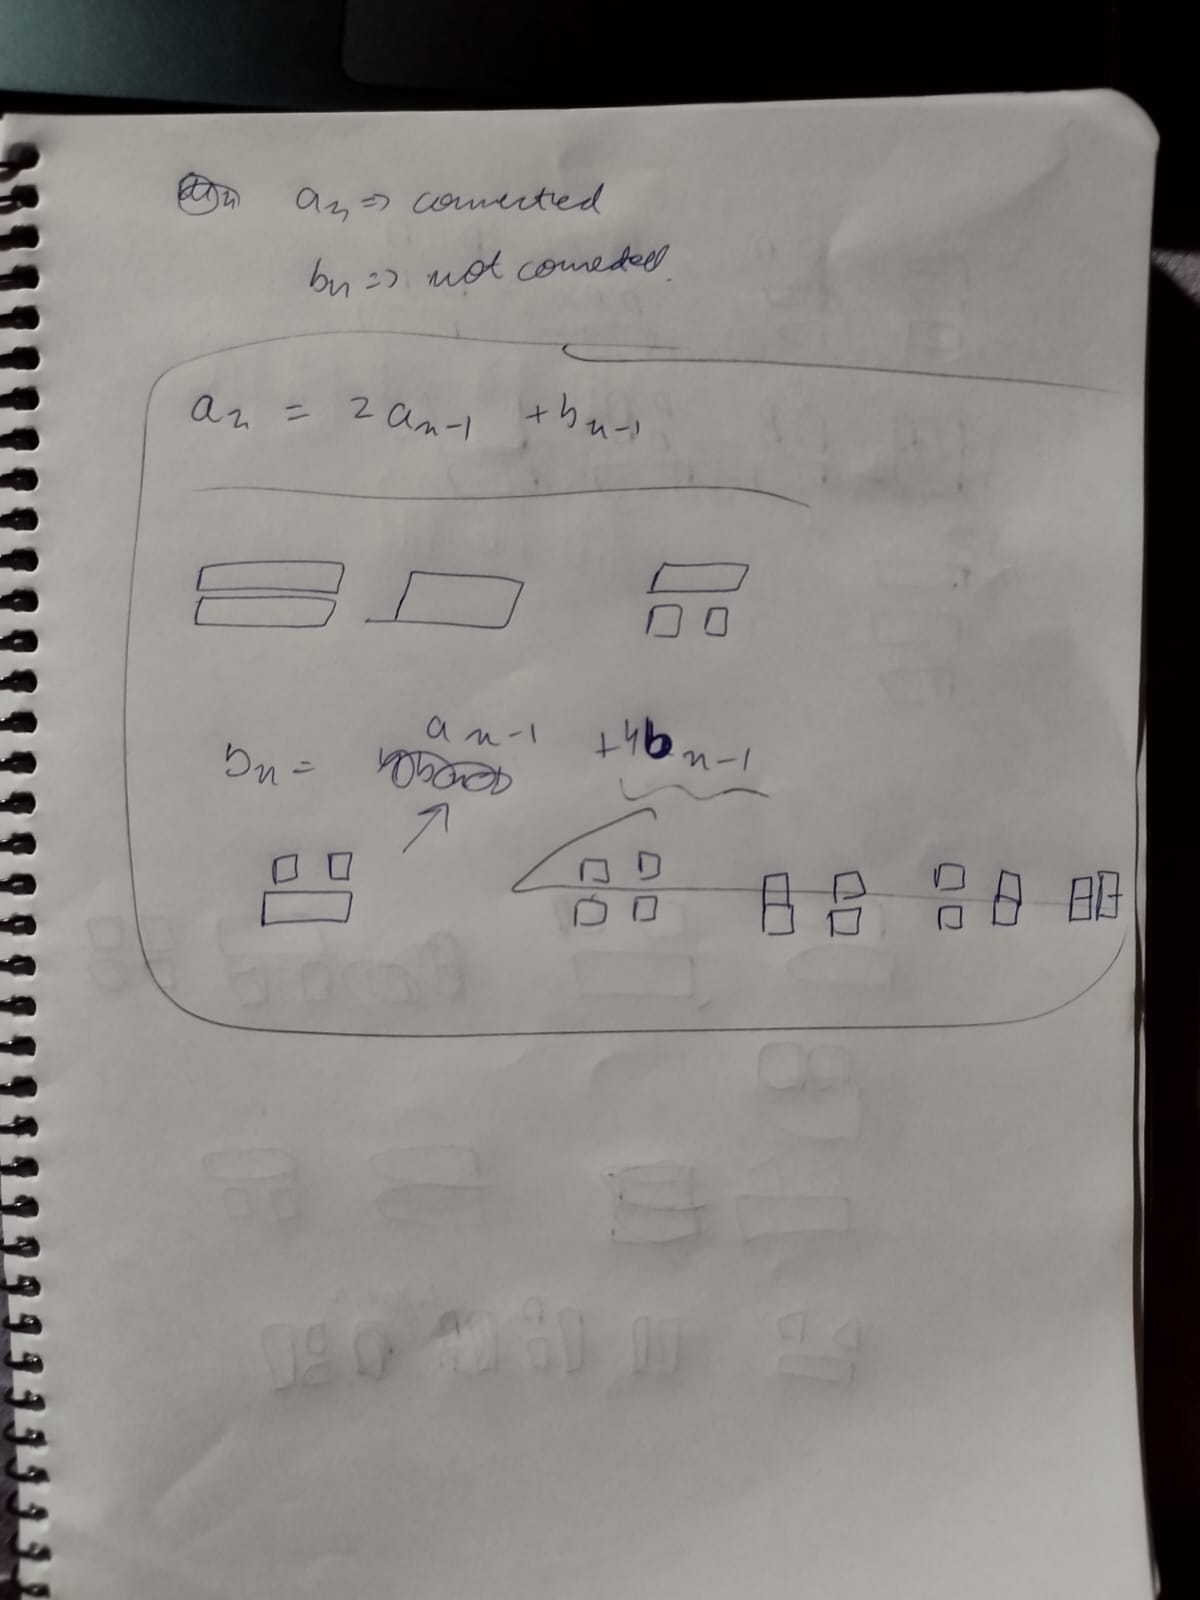 aₙ => connected
bₙ => not connected.
aₙ = 2aₙ₋₁ + bₙ₋₁
bₙ = aₙ₋₁ + 4bₙ₋₁